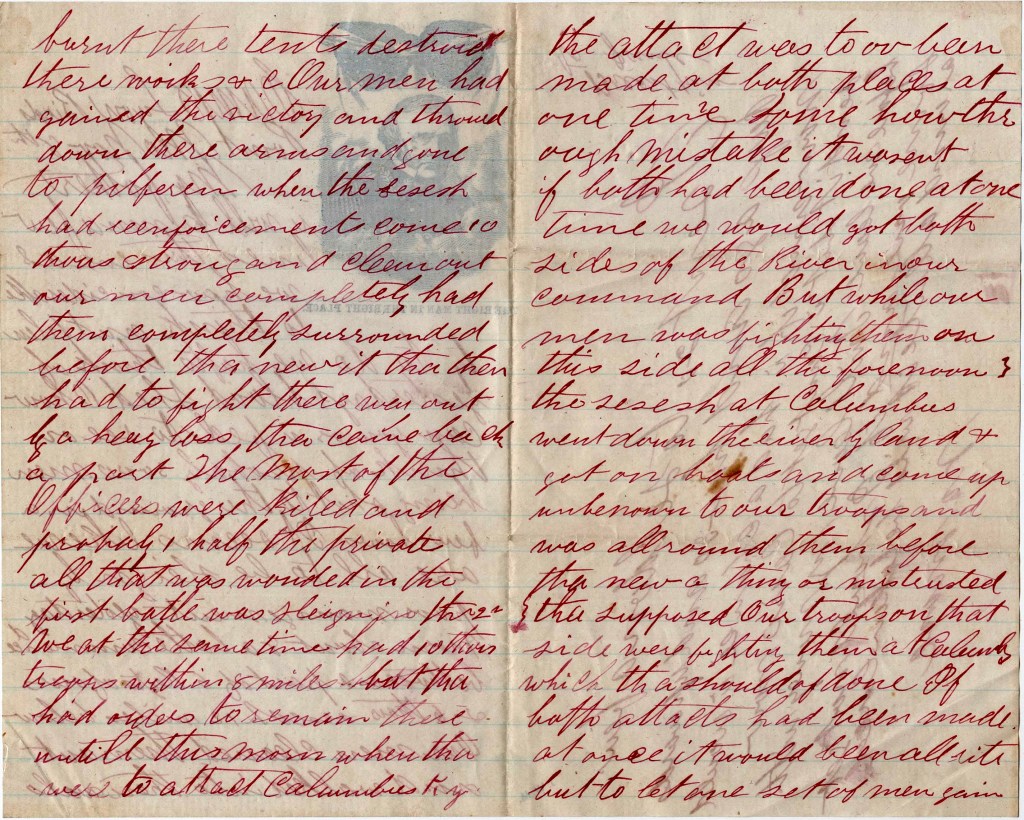 burnt there tents destroid
there works & c Our men had
gained the victory and throwd
down there arms and gone
to pilferen when the sesesh
had reenforcements come 10
thous strong and clean out
our men completely had
them completely surrounded
before tha new it tha then
had to fight there way out
by a heavy loss tha came back
a part The most of the
Officers were kiled and
probaly 1 half the private
all that was wonded in the
first battle was in the 2nd
We at the same time had 10 thous
troops within 8 miles but tha
had orders to remain there
untill this morn when tha
were to attact Calumbus Ky
the attact was to ov been
made at both places at
one time Some how thr
ough Mistake it wasent
if both had been done at one
time we would got both
sides of the River in our
command But while our
men was fighting them on
this side all the forenoon &
the sesesh at Calumbus
went down the river by land &
got on boats and come up
unbenown to our troops and
was all round them before
tha new a thing or mistrusted
& tha supposed Our troops on that
side were fighting them at Calumbus
which tha should of done If
both attacts had been made
at once it would been all rite
but to let one set of men gain
RIGHT MAN IN THE RIGHT PLACE.